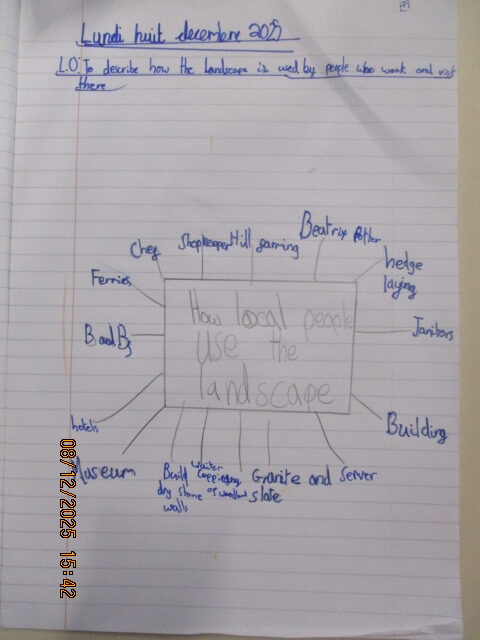 Lundi huit decembre 2025
L.O: To describe how the landscape is used by people who work and visit
there
Chef
Shopkeeper
Hill farming
Beatrix Potter
hedge
laying
Ferries
B and Bs
How local people
use the
landscape
Janitors
hotels
Building
Museum
Build
dry stone
walls
waiter
Coppicing
of woodland
Granite and
slate
Server
08/12/2025 15:42